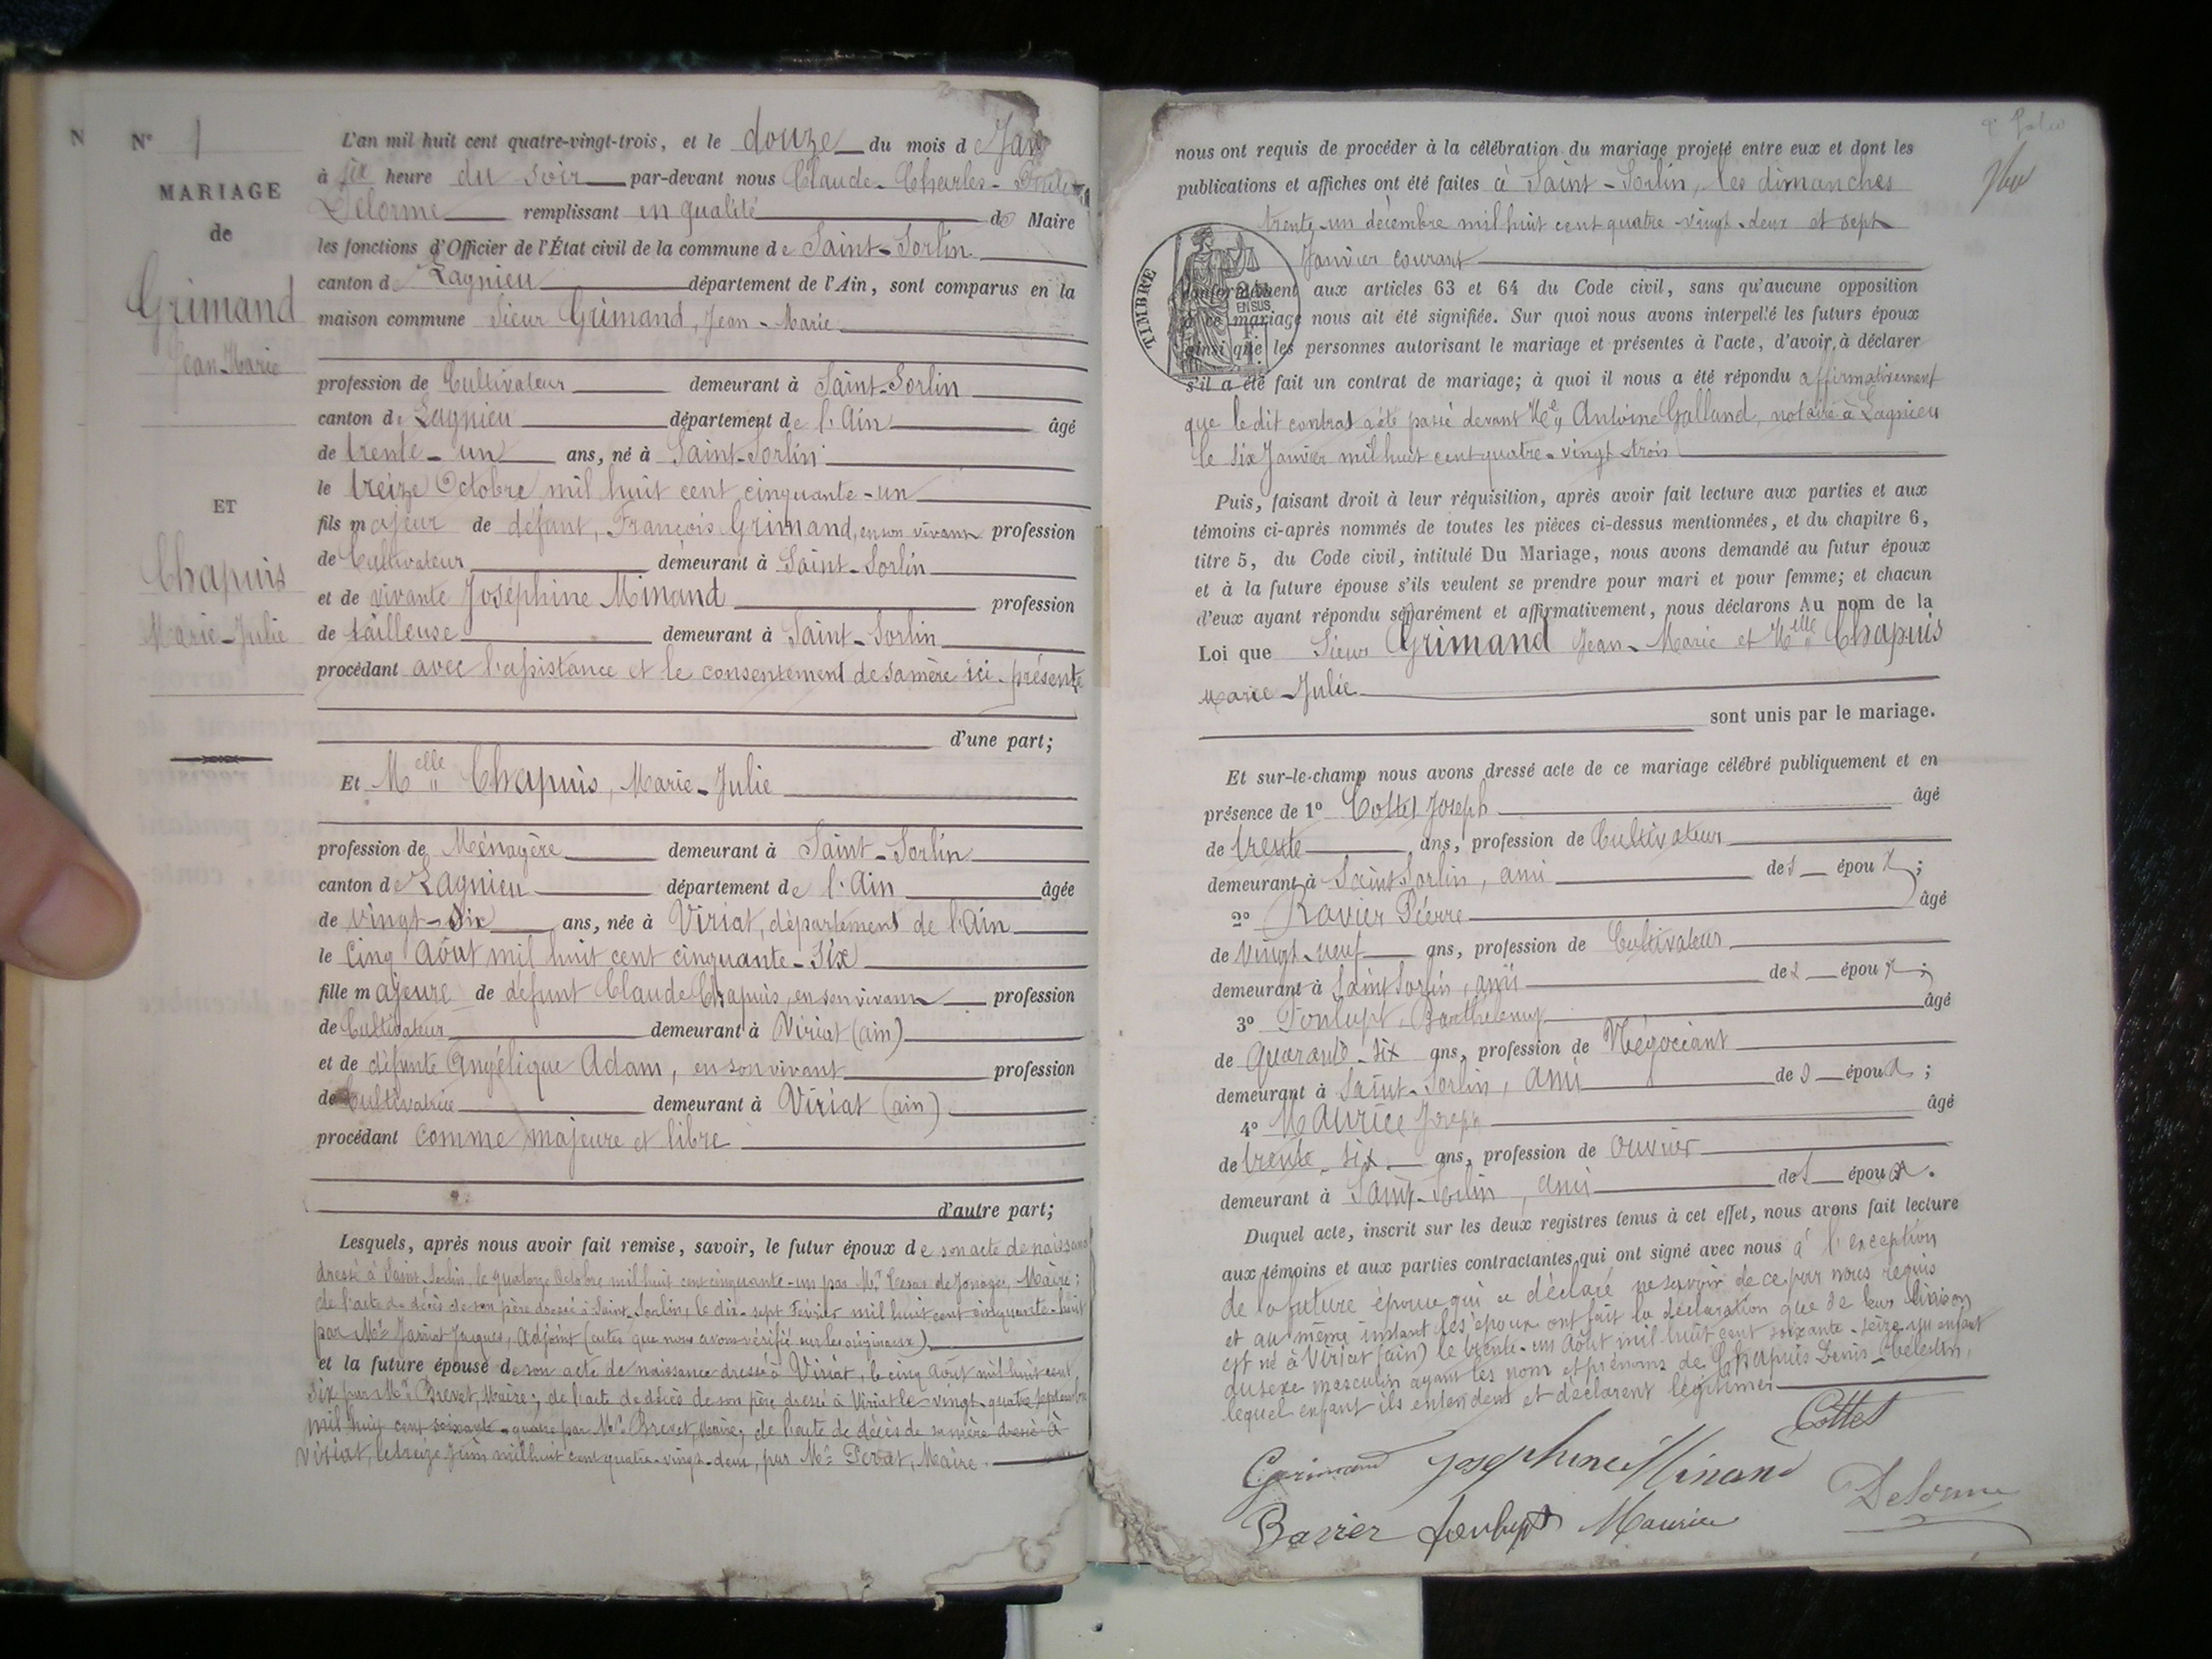 N
N° 1
MARIAGE
de
Grimand
Jean-Marie
ET
Chapuis
Marie-Julie
L'an mil huit cent quatre-vingt-trois, et le douze du mois de Jan
à six heure du soir par-devant nous Claude-Charles-
Delorme remplissant en qualité de Maire
les fonctions d'Officier de l'État civil de la commune de Saint-Sorlin
canton de Lagnieu département de l'Ain, sont comparus en la
maison commune Sieur Grimand, Jean-Marie
profession de Cultivateur demeurant à Saint-Sorlin
canton de Lagnieu département de l'Ain âgé
de trente-un ans, né à Saint-Sorlin
le treize Octobre mil huit cent cinquante-un
fils majeur de défunt, François Grimand, en son vivant profession
de Cultivateur demeurant à Saint-Sorlin
et de vivante Joséphine Minand profession
de tailleuse demeurant à Saint-Sorlin
procédant avec l'assistance et le consentement de sa mère ici présente
d'une part;
Et Melle Chapuis, Marie-Julie
profession de Ménagère demeurant à Saint-Sorlin
canton de Lagnieu département de l'Ain âgée
de vingt-six ans, née à Viriat, département de l'Ain
le cinq Août mil huit cent cinquante-six
fille majeure de défunt Claude Chapuis, en son vivant profession
de Cultivateur demeurant à Viriat (ain)
et de défunte Angélique Adam, en son vivant profession
de Cultivatrice demeurant à Viriat (ain)
procédant comme majeure et libre
d'autre part;
Lesquels, après nous avoir fait remise, savoir, le futur époux de son acte de naissance
dressé à Saint-Sorlin, le quatorze Octobre mil huit cent cinquante-un par Mr Cesar de Jonage, Maire;
de l'acte de décès de son père dressé à Saint-Sorlin, le dix-sept Février mil huit cent cinquante-huit
par Mr Jacques, Adjoint (actes que nous avons vérifié sur les originaux)
et la future épouse de son acte de naissance dressé à Viriat, le cinq Août mil huit cent
six par Mr Brevet, Maire; de l'acte de décès de son père dressé à Viriat le vingt-quatre septembre
mil huit cent soixante-quatre par Mr Brevet, Maire; de l'acte de décès de sa mère dressé à
Viriat, le treize Juin mil huit cent quatre-vingt-deux, par Mr Maire.
nous ont requis de procéder à la célébration du mariage projeté entre eux et dont les
publications et affiches ont été faites à Saint-Sorlin, les dimanches
trente-un décembre mil huit cent quatre-vingt-deux et sept
Janvier courant
TIMBRE
EN SUS
conformément aux articles 63 et 64 du Code civil, sans qu'aucune opposition
à ce mariage nous ait été signifiée. Sur quoi nous avons interpellé les futurs époux
ainsi que les personnes autorisant le mariage et présentes à l'acte, d'avoir à déclarer
s'il a été fait un contrat de mariage; à quoi il nous a été répondu affirmativement
que le dit contrat a été passé devant Me Antoine Galland, notaire à Lagnieu
le six Janvier mil huit cent quatre-vingt-trois
Puis, faisant droit à leur réquisition, après avoir fait lecture aux parties et aux
témoins ci-après nommés de toutes les pièces ci-dessus mentionnées, et du chapitre 6,
titre 5, du Code civil, intitulé Du Mariage, nous avons demandé au futur époux
et à la future épouse s'ils veulent se prendre pour mari et pour femme; et chacun
d'eux ayant répondu séparément et affirmativement, nous déclarons Au nom de la
Loi que Sieur Grimand Jean-Marie et Melle Chapuis
Marie-Julie
sont unis par le mariage.
Et sur-le-champ nous avons dressé acte de ce mariage célébré publiquement et en
présence de 1° Cottet Joseph âgé
de trente ans, profession de Cultivateur
demeurant à Saint-Sorlin, ami des époux;
2° Ravier Pierre âgé
de vingt-neuf ans, profession de Cultivateur
demeurant à Saint-Sorlin, ami des époux;
3° Fonlupt, Barthélemy âgé
de quarante-six ans, profession de Négociant
demeurant à Saint-Sorlin, ami des époux;
4° Maurice Joseph âgé
de trente-six ans, profession de ouvrier
demeurant à Saint-Sorlin, ami des époux.
Duquel acte, inscrit sur les deux registres tenus à cet effet, nous avons fait lecture
aux témoins et aux parties contractantes, qui ont signé avec nous à l'exception
de la future épouse qui a déclaré ne savoir de ce par nous requis
et au même instant les époux ont fait la déclaration que de leur liaison
est né à Viriat (ain) le trente-un Août mil huit cent soixante-seize un enfant
du sexe masculin ayant les nom et prénoms de Chapuis Denis-Célestin,
lequel enfant ils entendent et déclarent légitimer
Cottet
Grimand Josephine Minand
Delorme
Ravier Fonlupt Maurice